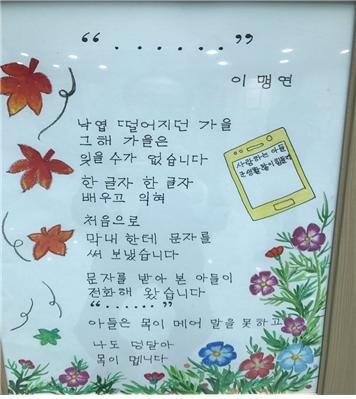 “ . . . . . . ”
이 맹 연
낙엽 떨어지던 가을
그해 가을은
잊을수가 없습니다
한 글자 한 글자
배우고 익혀
처음으로
막내 한테 문자를
써 보냈습니다
문자를 받아 본 아들이
전화해 왔습니다
“ . . . . . . ”
아들은 목이 메어 말을 못하고
나도 덩달아
목이 멥니다
사랑하는 아들